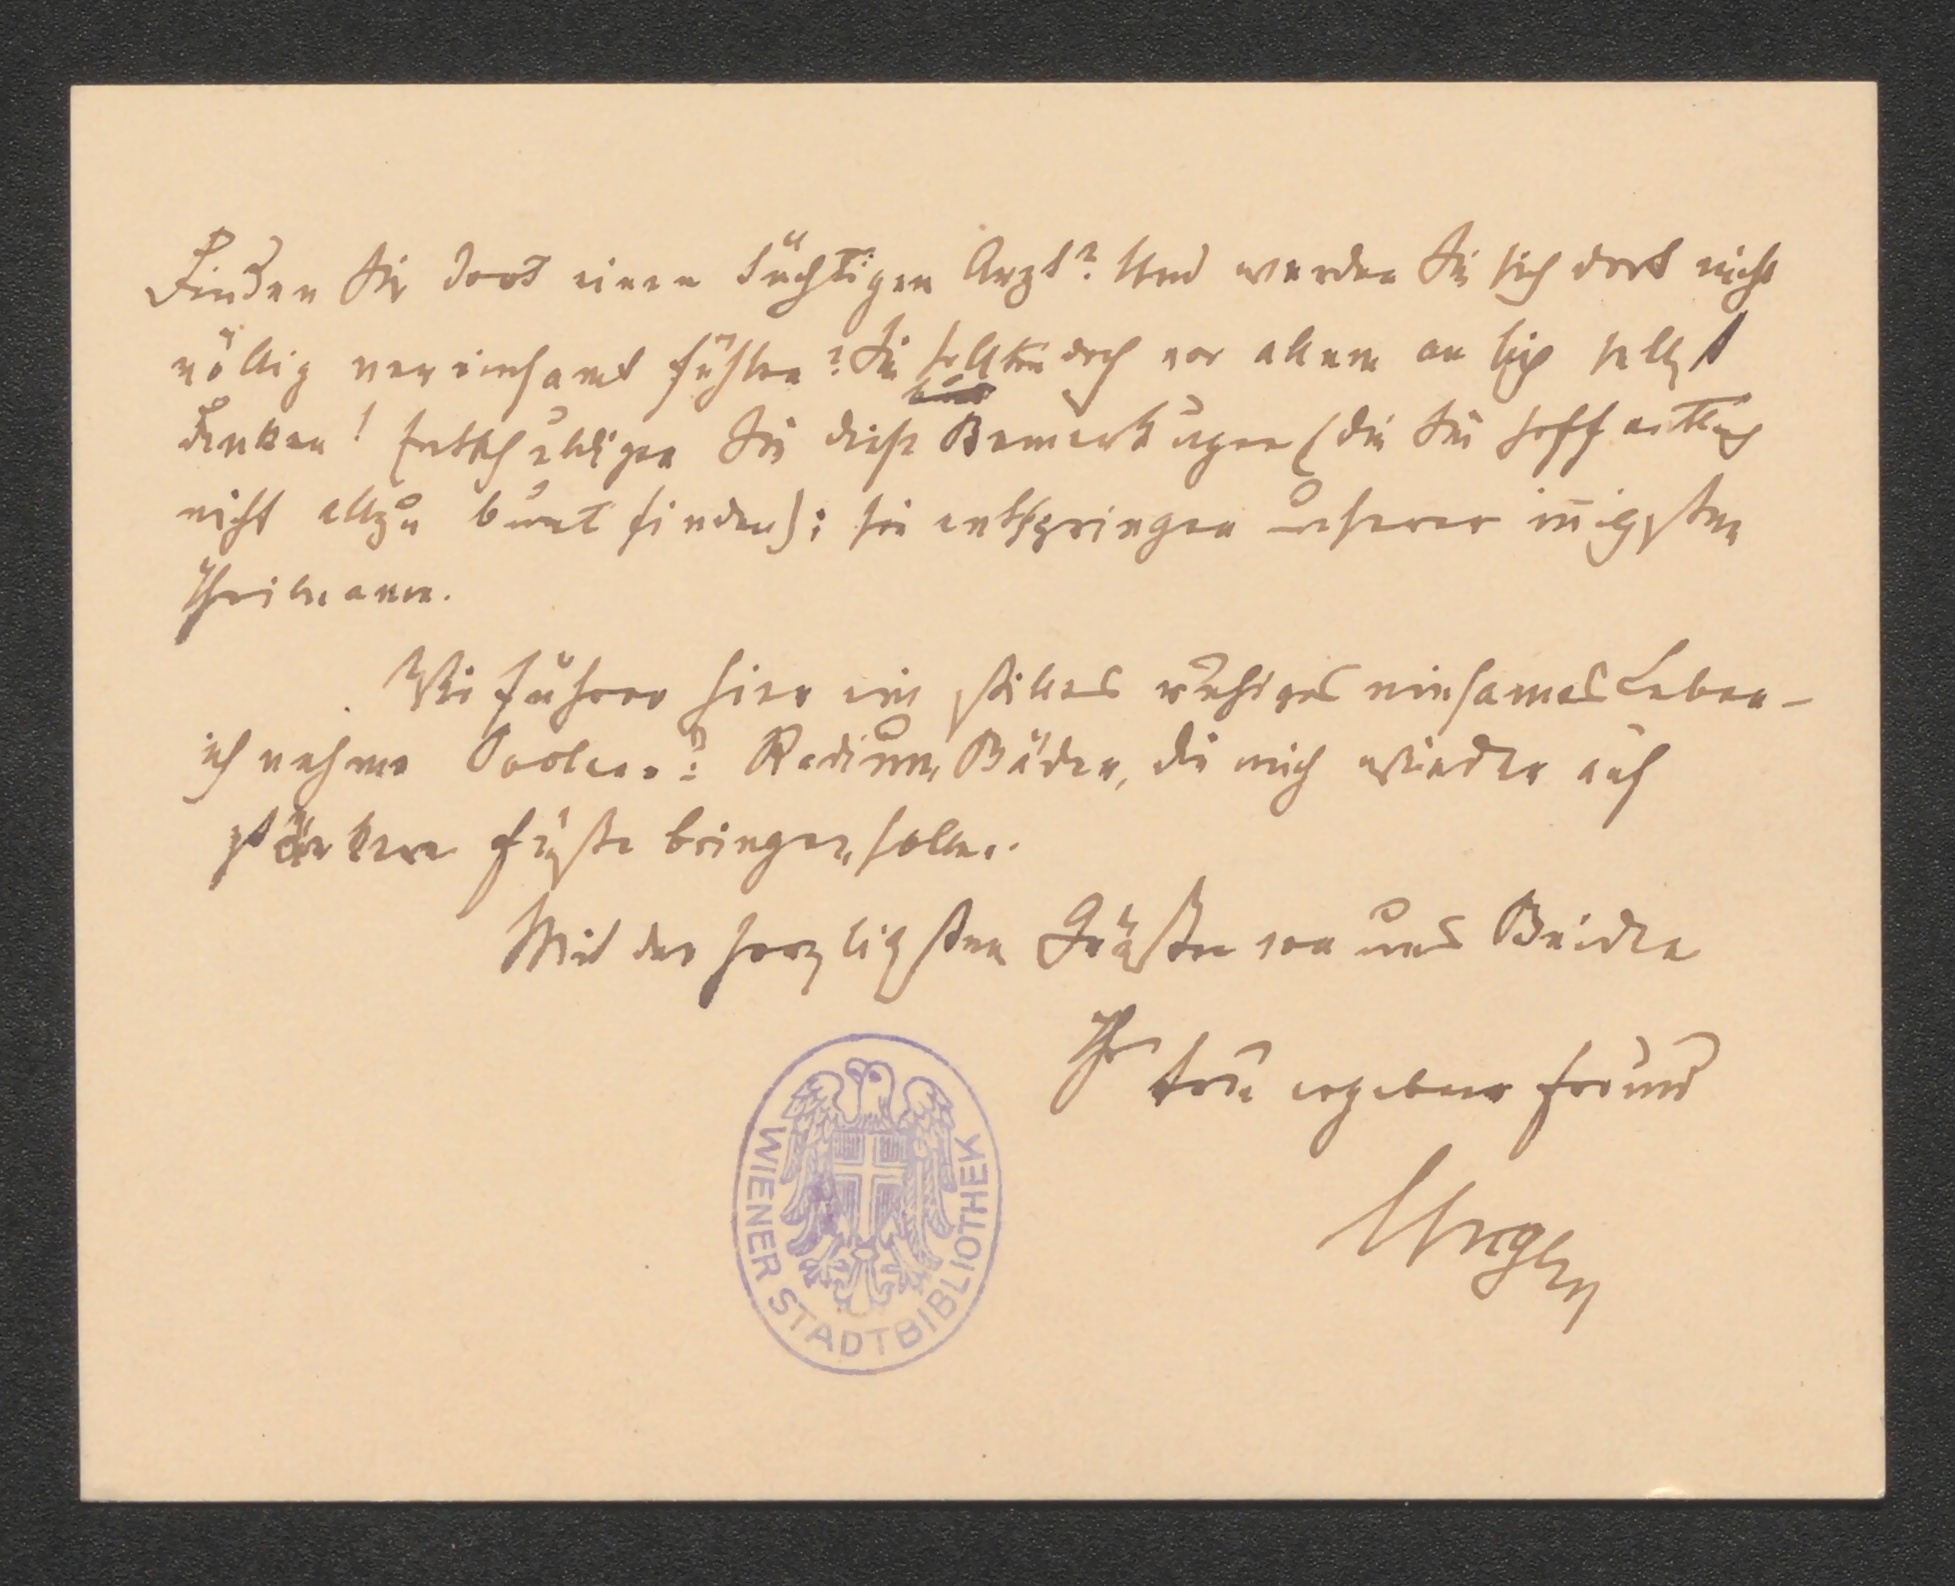 Finden Sie dort einen tüchtigen Arzt? Und werden Sie sich dort nicht
völlig vereinsamt fühlen? Sie sollten doch vor allem an sich selbst
denken! Entschuldigen Sie diese Bemerkungen (die Sie hoffentlich
nicht allzu bunt finden): sie entspringen unserer iñigsten
Theilname.
Wir führen hier ein stilles ruhiges einsames Leben –
ich nehme Radium Bäder, die mich wieder auf
stärkere Füße bringen sollen.
Mit den herzlichsten Grüßen von uns Beiden
Ihr
treu ergebener Freund
WIENER STADTBIBLIOTHEK